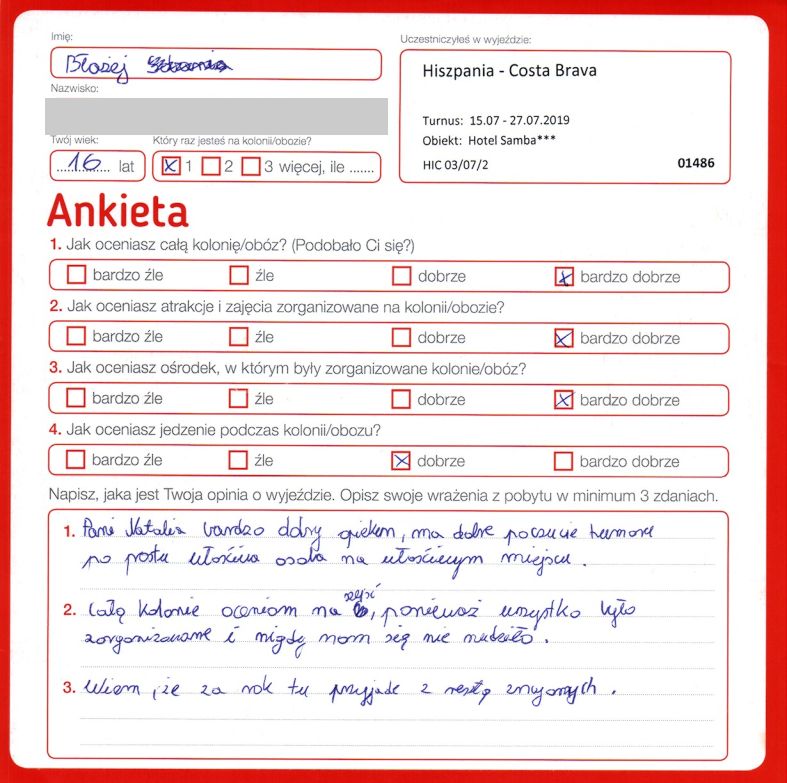 Imię:
Uczestniczyłeś w wyjeździe:
Błażej
Hiszpania - Costa Brava
Nazwisko:
Turnus: 15.07 - 27.07.2019
Obiekt: Hotel Samba***
HIC 03/07/2 01486
Twój wiek: Który raz jesteś na kolonii/obozie?
16 lat x 1 2 3 więcej, ile .......
Ankieta
1. Jak oceniasz całą kolonię/obóz? (Podobało Ci się?)
bardzo źle źle dobrze x bardzo dobrze
2. Jak oceniasz atrakcje i zajęcia zorganizowane na kolonii/obozie?
bardzo źle źle dobrze x bardzo dobrze
3. Jak oceniasz ośrodek, w którym były zorganizowane kolonie/obóz?
bardzo źle źle dobrze x bardzo dobrze
4. Jak oceniasz jedzenie podczas kolonii/obozu?
bardzo źle źle x dobrze bardzo dobrze
Napisz, jaka jest Twoja opinia o wyjeździe. Opisz swoje wrażenia z pobytu w minimum 3 zdaniach.
1. Pani Natalia bardzo dobry opiekun, ma dobre poczucie humoru
po prostu właściwa osoba na właściwym miejscu.
2. Całą kolonie oceniam na sześć, ponieważ wszystko było
zorganizowane i nigdy nam się nie nudziło.
3. Wiem, że za rok tu przyjade z resztą znajomych.